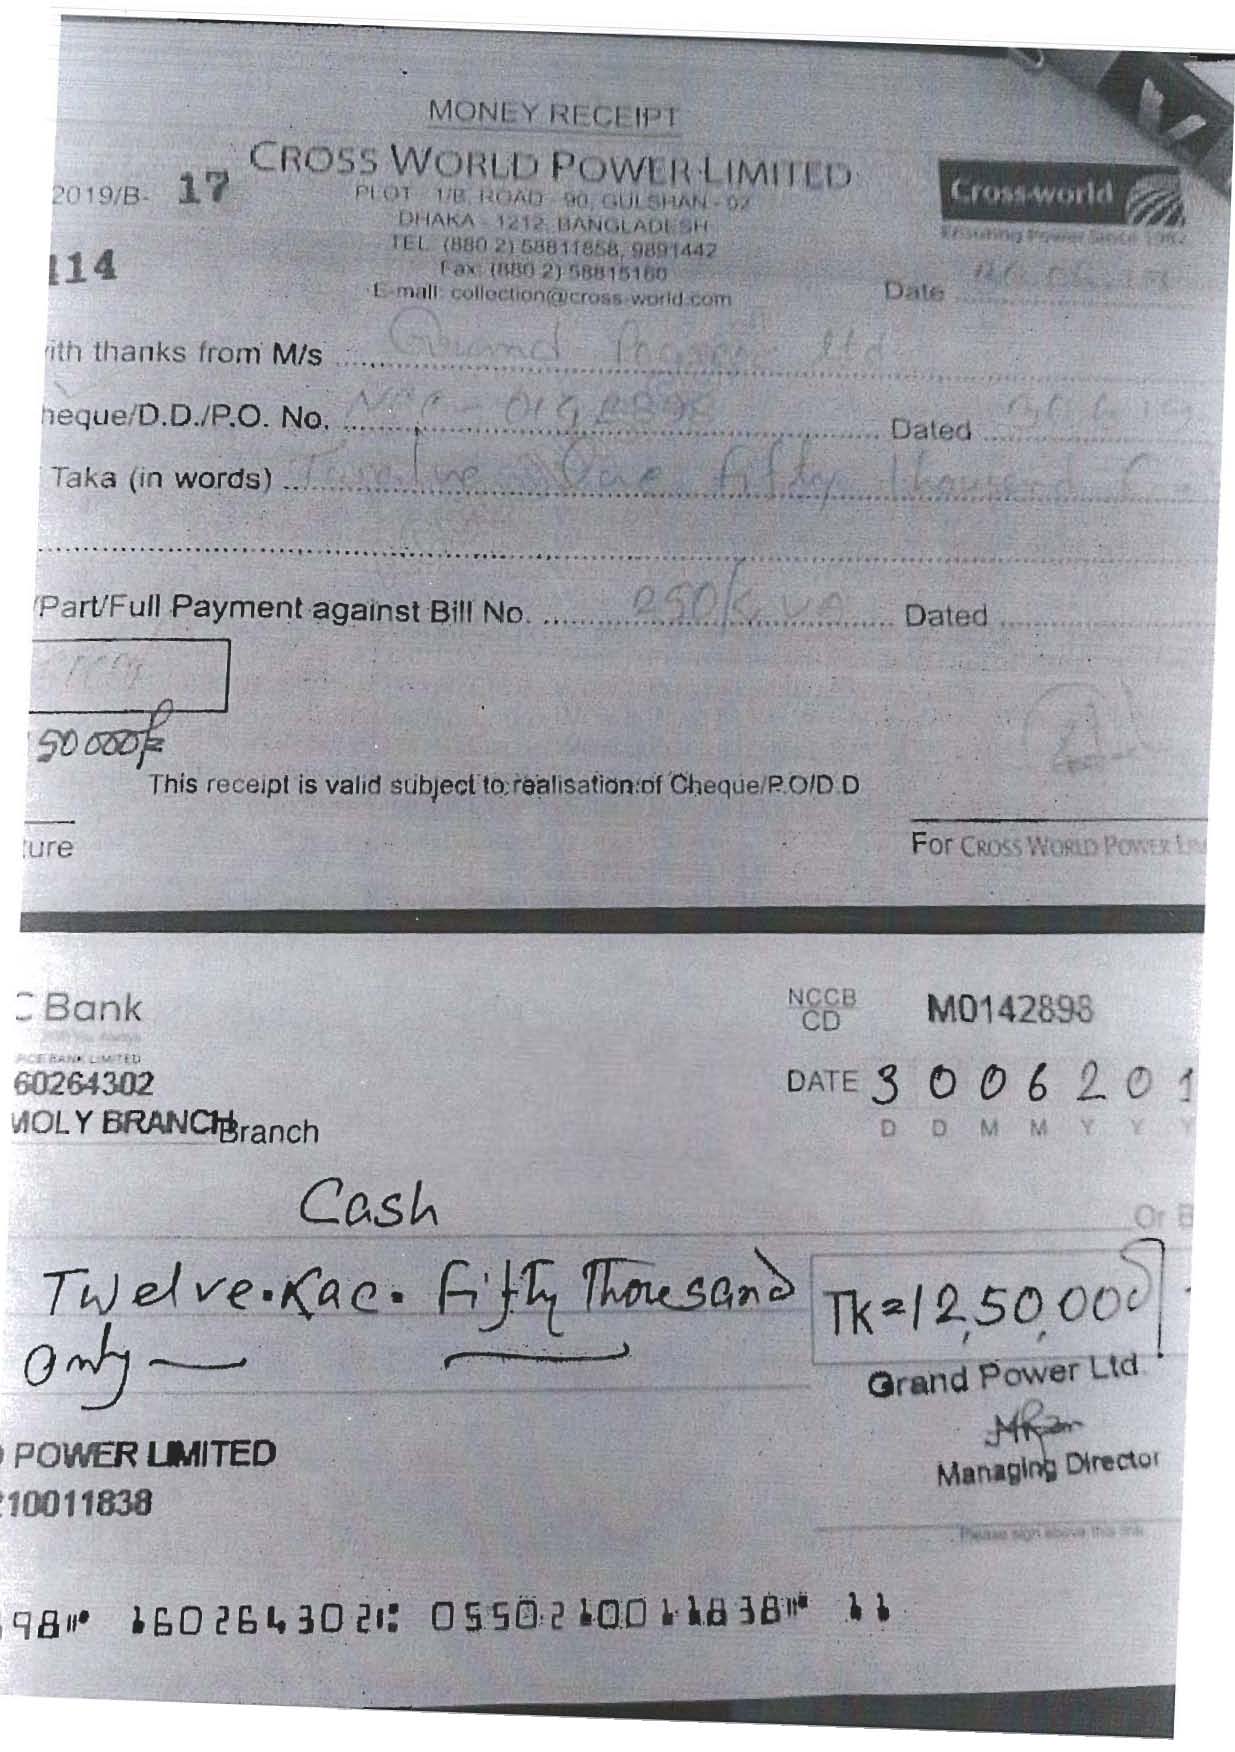 MONEY RECEIPT
CROSS WORLD POWER LIMITED
2019/B- 17
PLOT - 1/B, ROAD - 90, GULSHAN - 02
DHAKA - 1212, BANGLADESH
TEL: (880 2) 58811858, 9891442
Fax: (880 2) 58815160
E-mail: collection@cross-world.com
Cross-world
Ensuring Power Since 1982
114
Date
ith thanks from M/s Grand Power ltd
heque/D.D./P.O. No. Dated
Taka (in words) Twelve Fifty thousand
/Part/Full Payment against Bill No. 250 KVA Dated
50000/-
This receipt is valid subject to realisation of Cheque/P.O/D.D
ure
For CROSS WORLD POWER LIM
C Bank
NCCB
CD
M0142898
RCE BANK LIMITED
60264302
DATE 3 0 0 6 2 0 1
MOLY BRANCH Branch
D D M M Y Y Y
Cash
Or B
Twelve Lac Fifty Thousand
TK=12,50,000
only
Grand Power Ltd.
POWER LIMITED
Managing Director
210011838
Please sign above this line
98⑈ 160264302⑆ 0550210011838⑈ 11